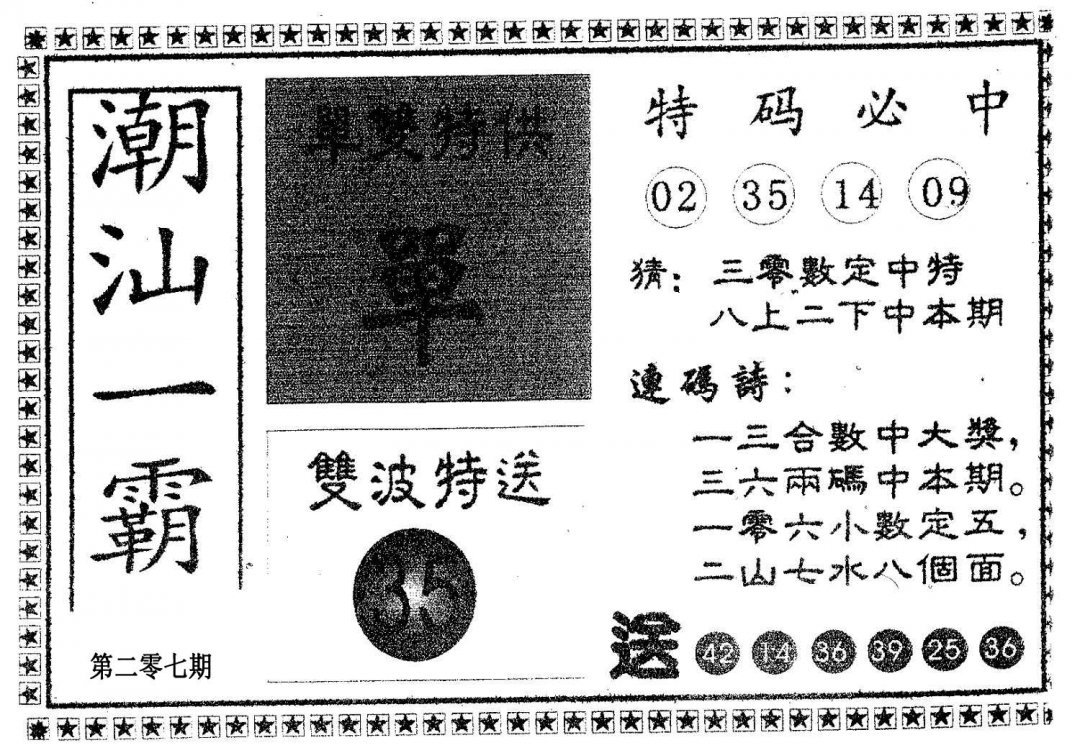 潮汕一霸
第二零七期
單雙特供
單
雙波特送
35
特码必中
02 35 14 09
猜：三零數定中特
八上二下中本期
連碼詩：
一三合數中大獎，
三六兩碼中本期。
一零六小數定五，
二山七水八個面。
送 42 14 36 39 25 36